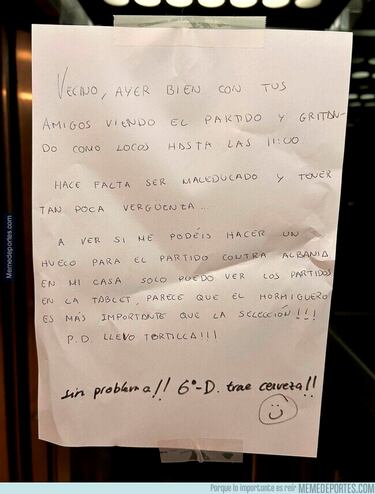 VECINO, AYER BIEN CON TUS
AMIGOS VIENDO EL PARTIDO Y GRITAN-
DO COMO LOCOS HASTA LAS 11:00
HACE FALTA SER MALEDUCADO Y TENER
TAN POCA VERGÜENZA...
A VER SI ME PODÉIS HACER UN
HUECO PARA EL PARTIDO CONTRA ALBANIA
EN MI CASA SOLO PUEDO VER LOS PARTIDOS
EN LA TABLET, PARECE QUE EL HORMIGUERO
ES MÁS IMPORTANTE QUE LA SELECCIÓN!!!
P.D. LLEVO TORTILLA!!!
sin problema!! 6º-D. trae cerveza!!
Memedeportes.com
Porque lo importante es reír MEMEDEPORTES.COM